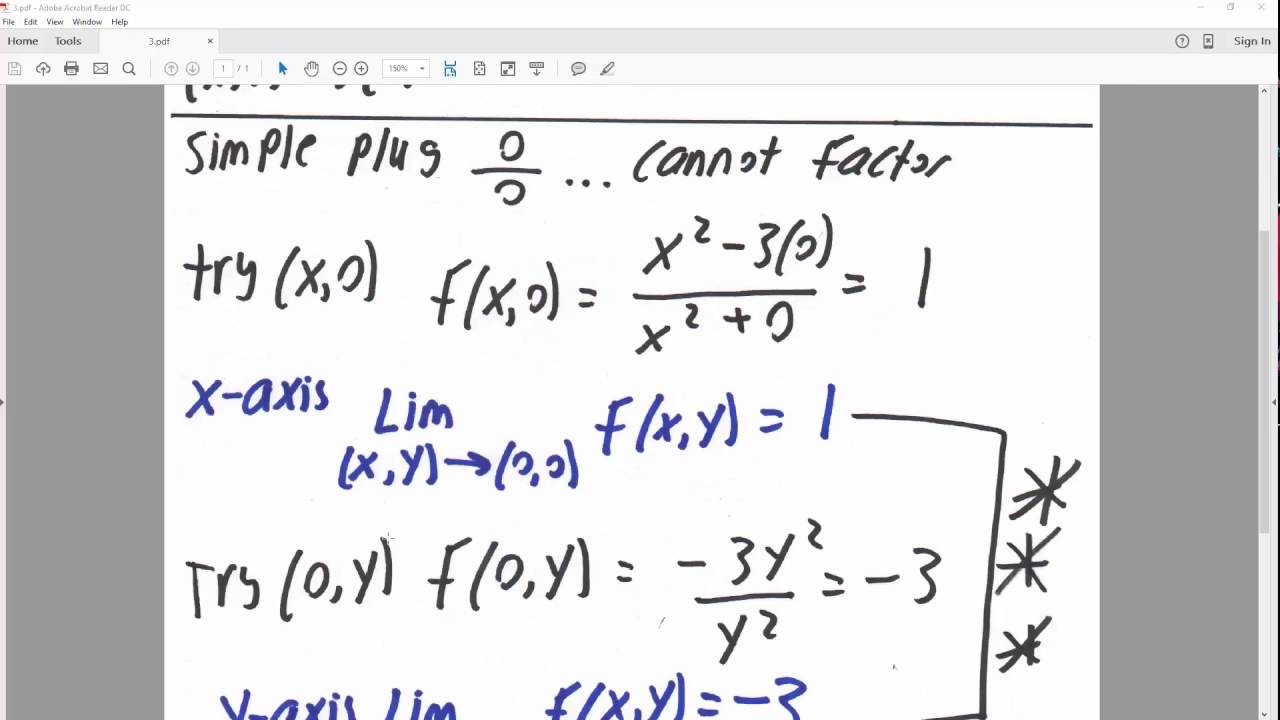 3.pdf - Adobe Acrobat Reader DC
File Edit View Window Help
Home Tools 3.pdf × Sign In
1 / 1 150%
Simple plug 0/0 ... cannot factor
try (x,0) f(x,0) = x² - 3(0) / x² + 0 = 1
x-axis Lim (x,y)→(0,0) f(x,y) = 1
Try (0,y) f(0,y) = -3y² / y² = -3
y-axis Lim f(x,y) = -3